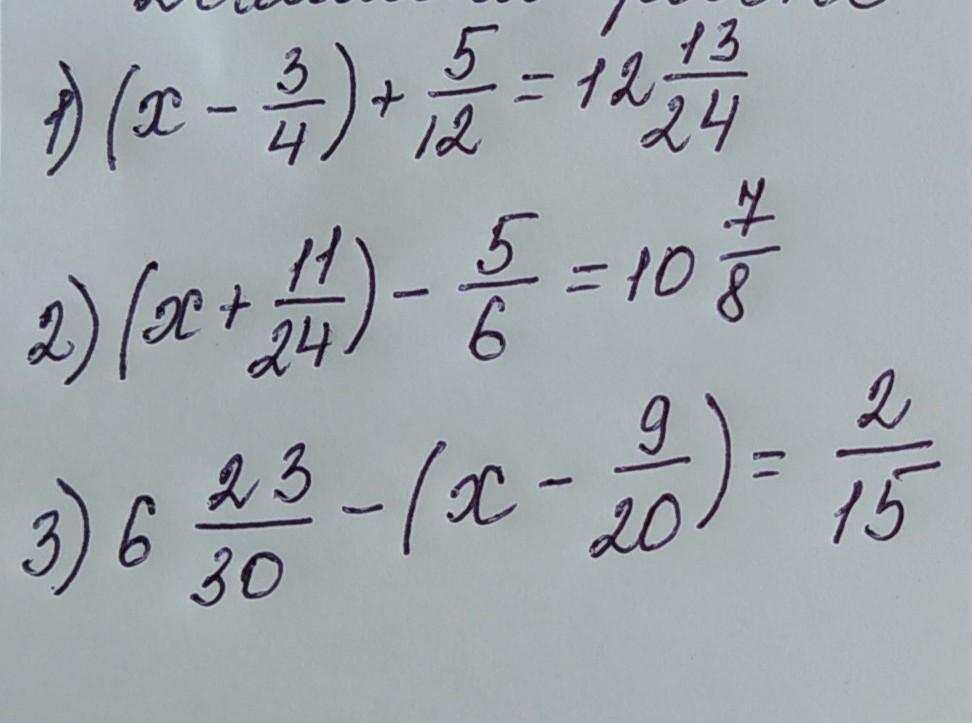 1) (x - 3/4) + 5/12 = 12 13/24
2) (x + 11/24) - 5/6 = 10 7/8
3) 6 23/30 - (x - 9/20) = 2/15